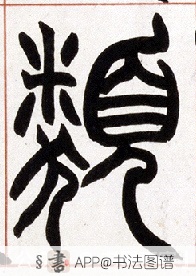 類
§書 APP@书法图谱